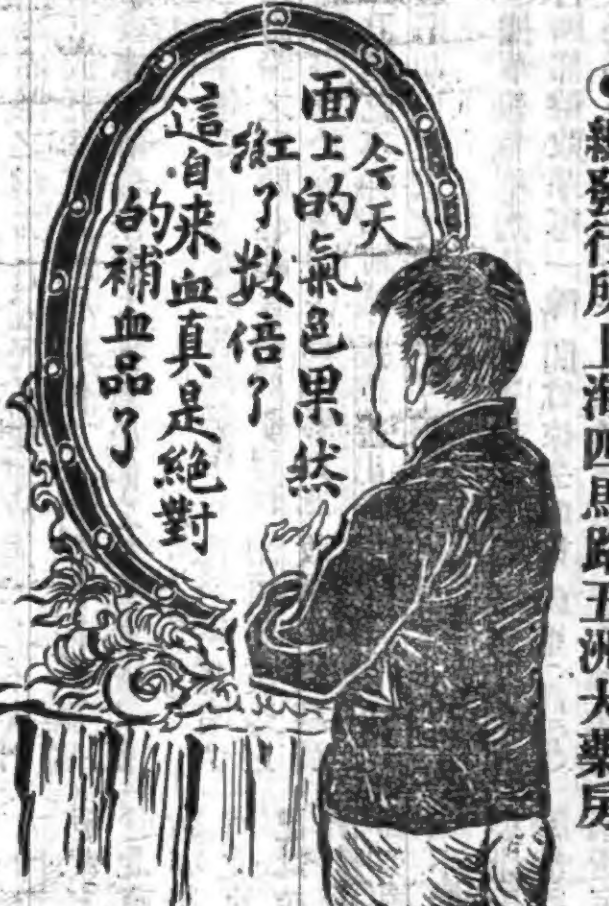 ●新發行所上海四馬路五洲大藥房
今天
面上的氣色果然
紅了数倍了
這自来血真是絶對
的補血品了